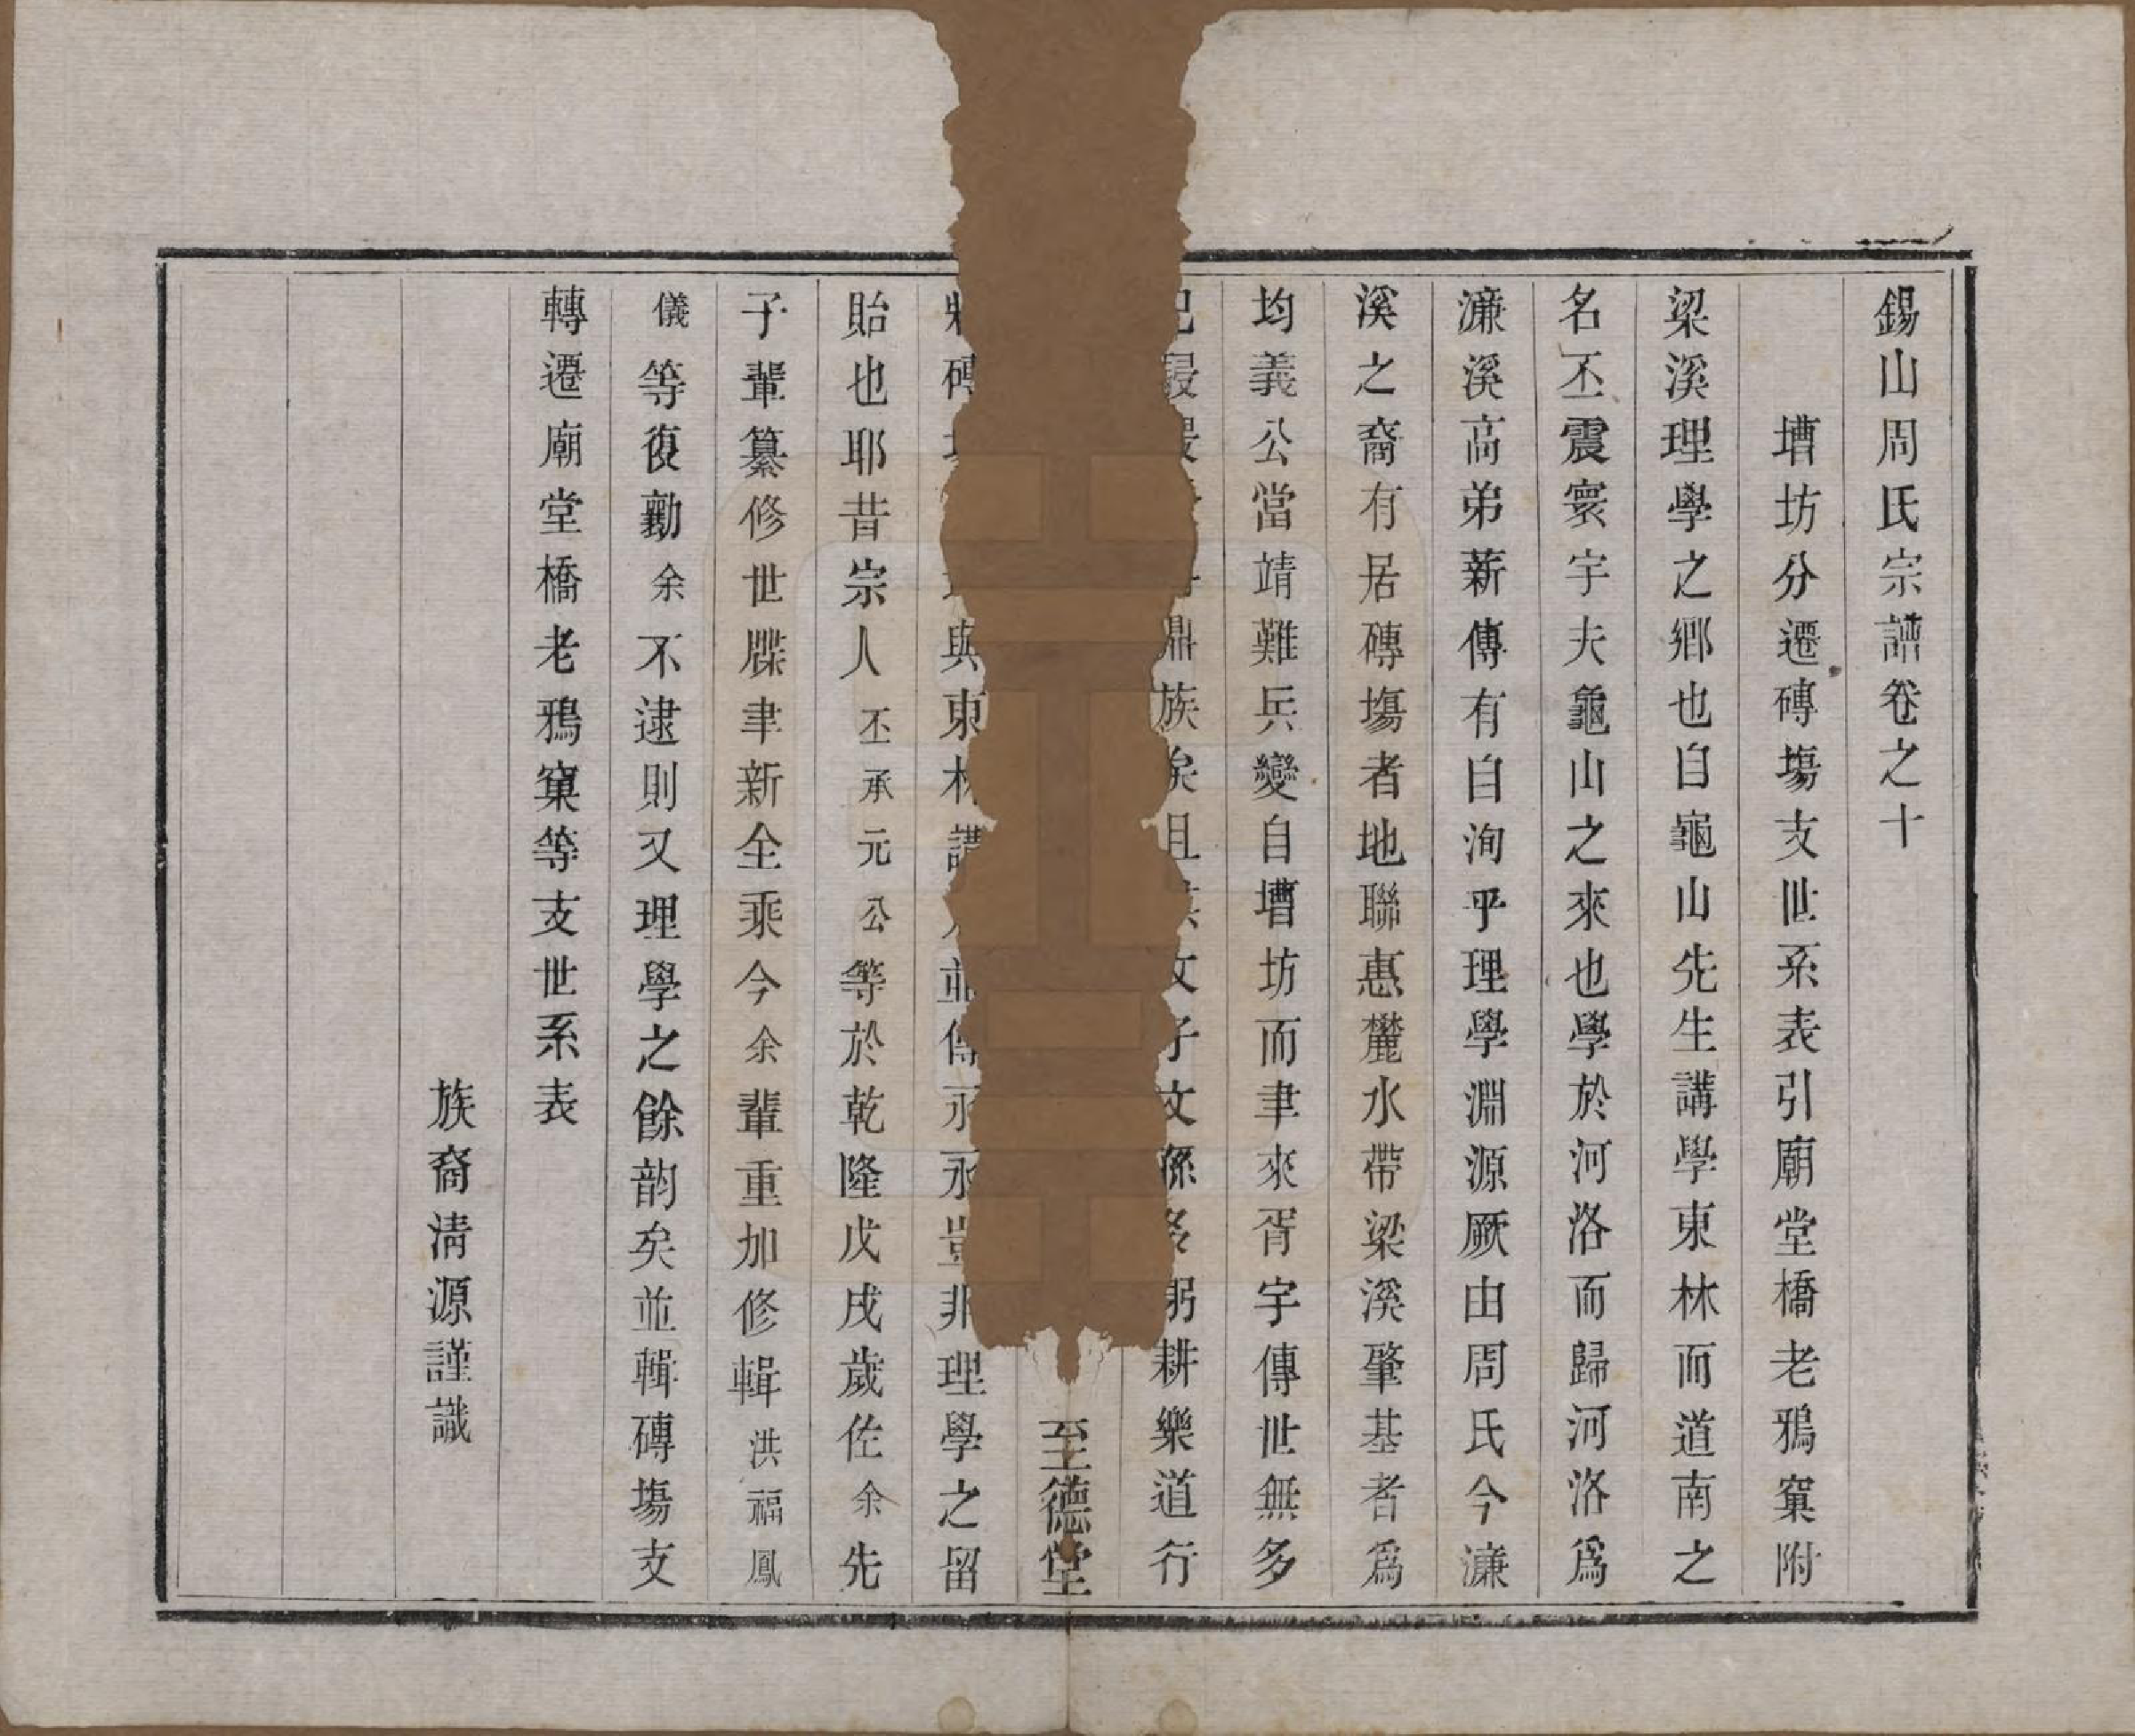 錫山周氏宗譜卷之十
㙮坊分遷磚塲支世系表引廟堂橋老鴉窠附
梁溪理學之鄉也自龜山先生講學東林而道南之
名丕震寰宇夫龜山之來也學於河洛而歸河洛爲
濂溪高弟薪傳有自洵乎理學淵源厥由周氏今濂
溪之裔有居磚塲者地聯惠麓水帶梁溪肇基者爲
均義公當靖難兵變自㙮坊而聿來胥宇傳世無多
已最 鼎族矣且 文子文孫多躬耕樂道行
至德堂
將磚 與東林講 並傳永永豈非理學之留
貽也耶昔宗人丕承元公等於乾隆戊戌歲佐余先
子輩纂修世牒聿新全乘今余輩重加修輯洪福鳳
儀等復勷余不逮則又理學之餘韵矣並輯磚塲支
轉遷廟堂橋老鴉窠等支世系表
族裔清源謹識